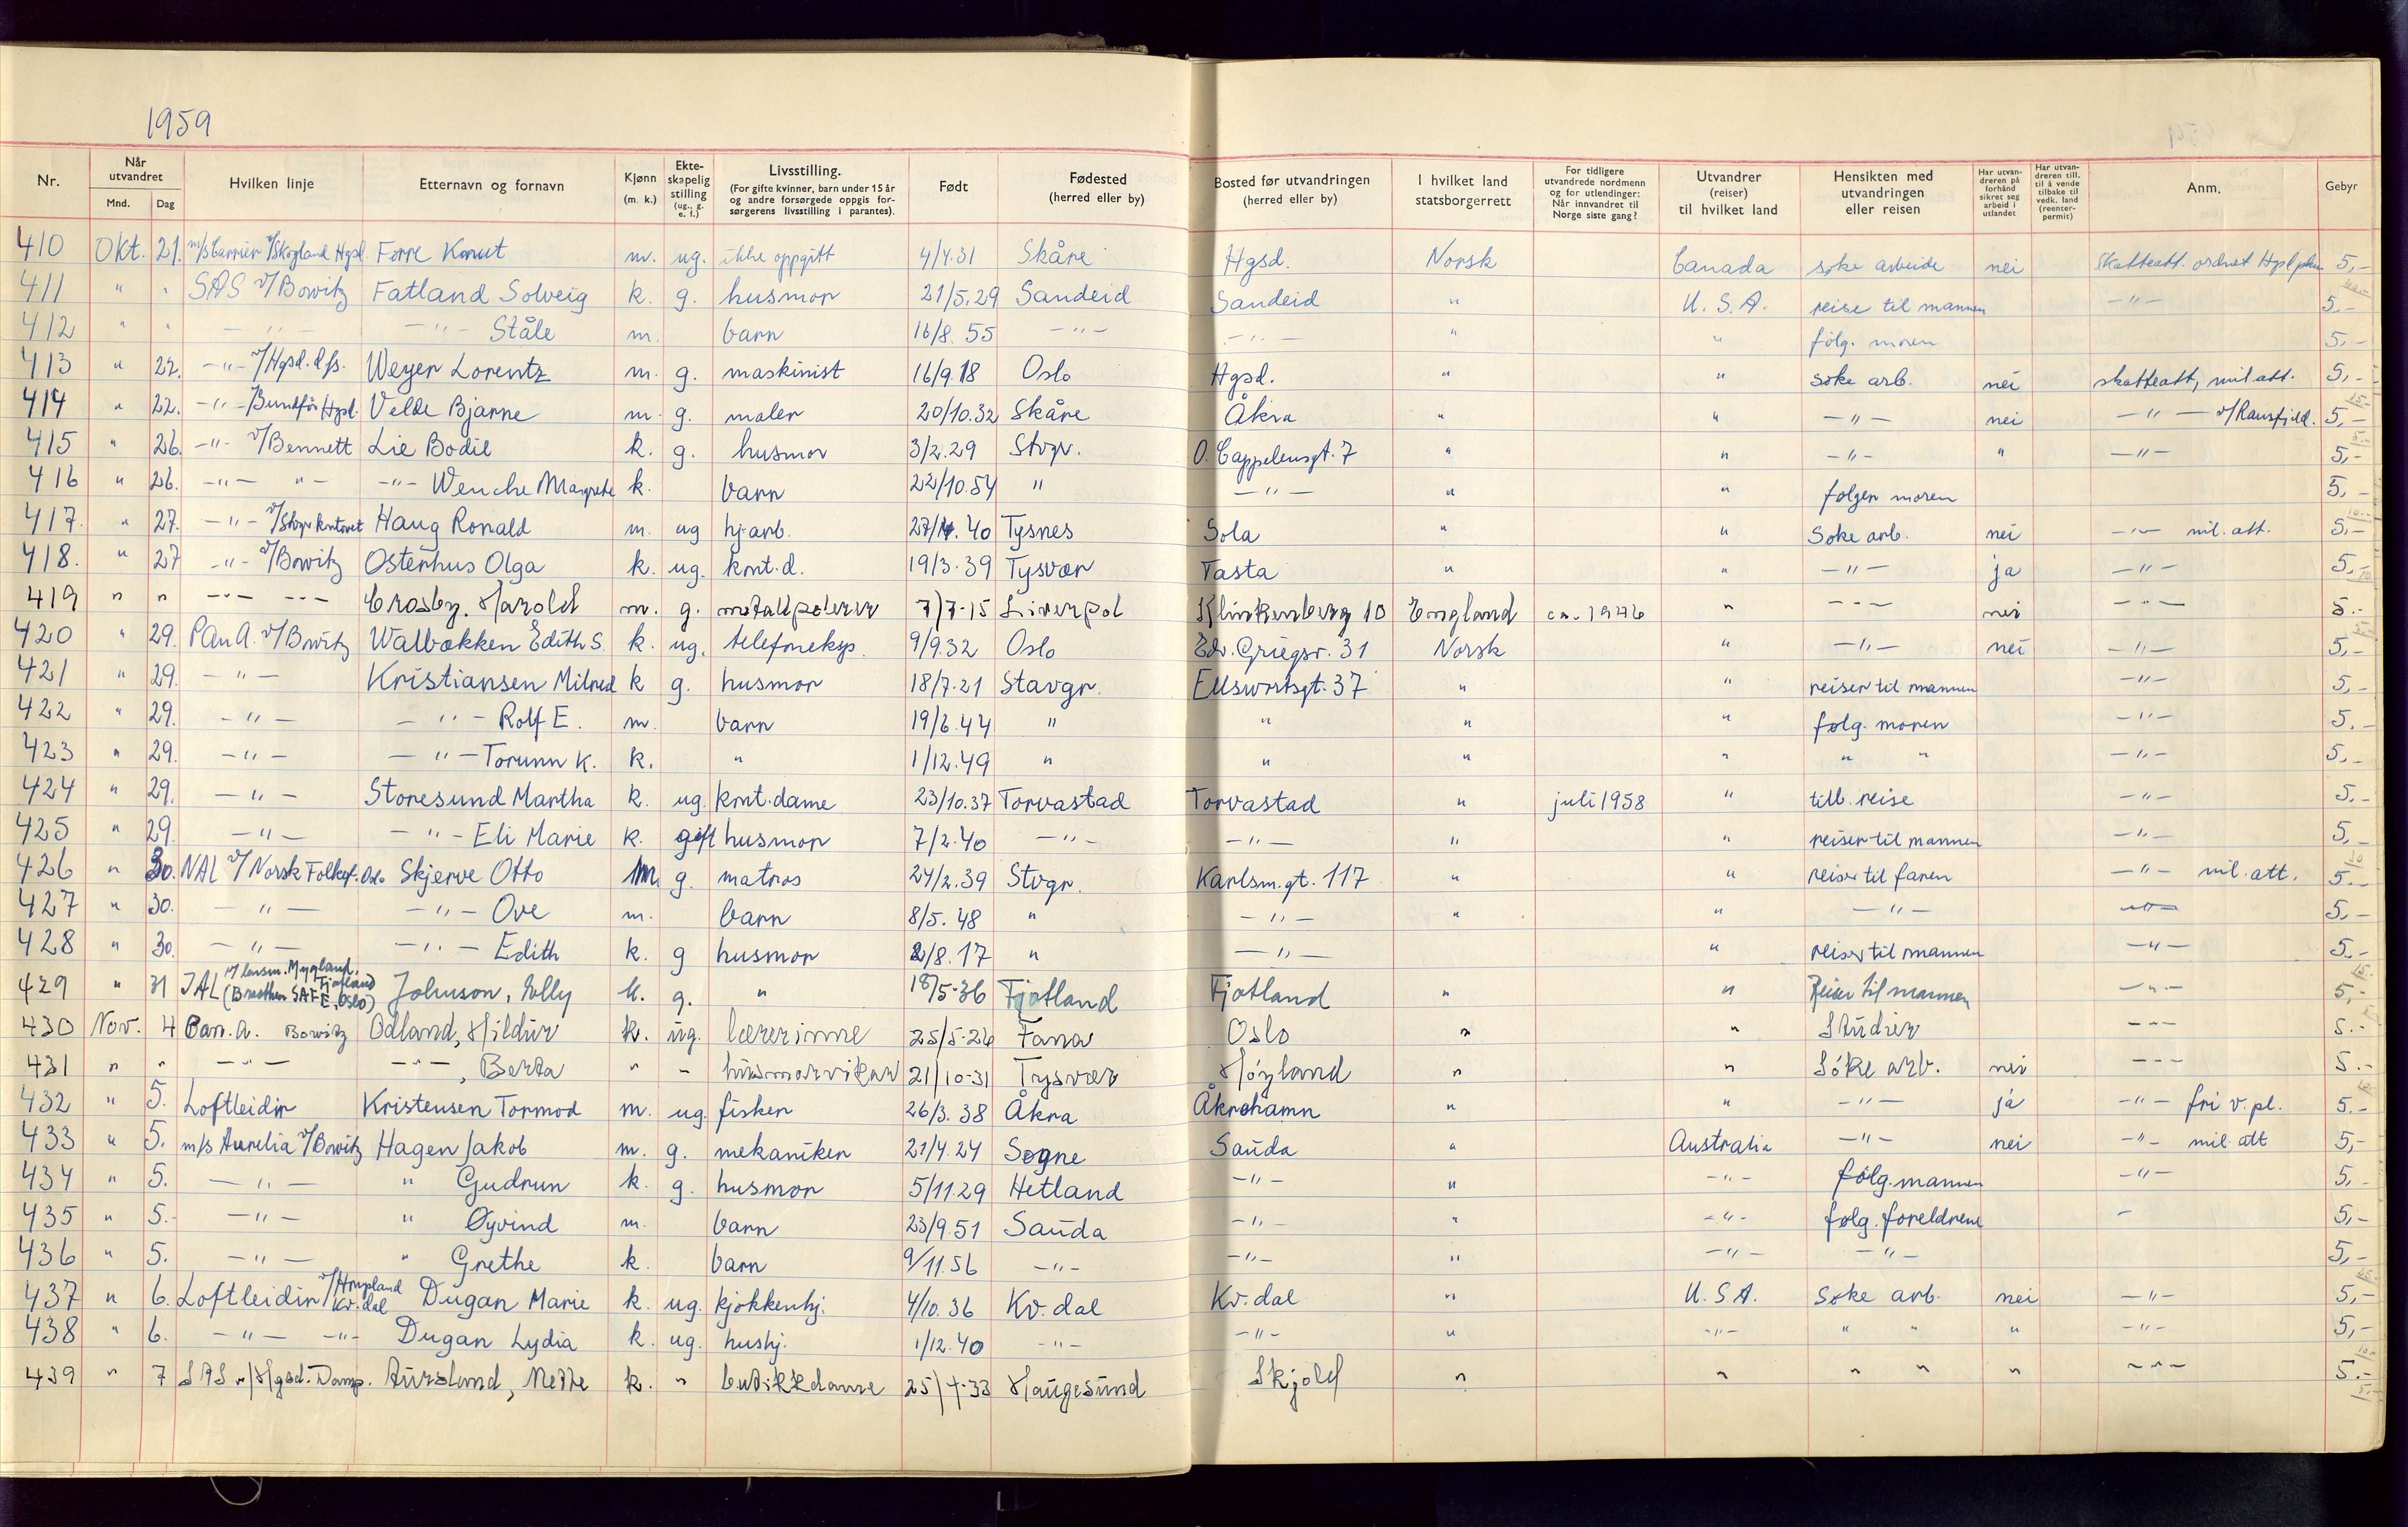 1959
Nr. Når utvandret Mnd. Dag Hvilken linje Etternavn og fornavn Kjønn (m. k.) Ekteskapelig stilling (ug., g. e. f.) Livsstilling. (For gifte kvinner, barn under 15 år og andre forsørgede oppgis forsørgerens livsstilling i parantes). Født Fødested (herred eller by) Bosted før utvandringen (herred eller by) I hvilket land statsborgerrett For tidligere utvandrede nordmenn og for utlendinger: Når innvandret til Norge siste gang? Utvandrer (reiser) til hvilket land Hensikten med utvandringen eller reisen Har utvandreren på forhånd sikret seg arbeid i utlandet Har utvandreren till. til å vende tilbake til vedk. land (reenterpermit) Anm. Gebyr
410 Okt. 21. m/s Carrier v/Skogland Hgsd. Førre Knut m. ug. ikke oppgitt 4/4.31 Skåre Hgsd. Norsk Canada søke arbeide nei Skatteatt. ordnet Hgsd 5,-
411 " " SAS v/Bowitz Fatland Solveig k. g. husmor 21/5.29 Sandeid Sandeid " U.S.A. reise til mannen -"- 5.-
412 " " -"- -"- Ståle m. barn 16/8.55 -"- -"- " " følg. moren 5,-
413 " 22. -"- v/Hgsd. dfs. Weyer Lorentz m. g. maskinist 16/9.18 Oslo Hgsd. " " søke arb. nei skatteatt, mil.att. 5,-
414 " 22. -"- Hgsd. Velde Bjarne m. g. maler 20/10.32 Skåre Åkra " " -"- nei -"- 5,-
415 " 26. -"- v/Bennett Lie Bodil k. g. husmor 3/2.29 Stvgr. O. Cappelensgt. 7 " " -"- " -"- 5,-
416 " 26. -"- "- -"- Wenche Margrete k. barn 22/10.54 " -"- " " følger moren 5,-
417. " 27. -"- v/Stvgr kntoret Haug Ronald m. ug hj.arb. 27/4.40 Tysnes Sola " " Søke arb. nei -"- mil. att. 5,-
418. " 27 -"- v/Bowitz Østerhus Olga k. ug. knt.d. 19/3.39 Tysvær Tasta " " -"- ja -"- 5,-
419 " " -"- -"- Crosby, Harold m. g. metallpolerer 7/7-15 Liverpol Klinkenberg 10 England ca. 1946 " -"- nei -"- 5.-
420 " 29. PAnA. v/Bowitz Walbækken Edith S. k. ug. telefoneksp. 9/9.32 Oslo Edv. Griegsv. 31 Norsk " -"- nei -"- 5,-
421 " 29. -"- Kristiansen Milred k g. husmor 18/7.21 Stavgr. Ellsworthsgt. 37 " " reiser til mannen -"- 5,-
422 " 29. -"- -"- Rolf E. m. barn 19/6.44 " " " " følg. moren -"- 5.-
423 " 29. -"- -"- Torunn K. k. " 1/12.49 " " " " " " -"- 5,-
424 " 29. -"- Storesund Martha k. ug. knt.dame 23/10.37 Torvastad Torvastad " juli 1958 " tilb. reise -"- 5.-
425 " 29. -"- -"- Eli Marie k. gift husmor 7/2.40 -"- -"- " " reiser til mannen -"- 5,-
426 " 30. NAL v/Norsk Folkef. Oslo Skjerve Otto m. g. matros 24/2.39 Stvgr. Karlsm.gt. 117 " " reiser til faren -"- mil. att. 5.-
427 " 30. -"- -"- Ove m. barn 8/5.48 " -"- " " -"- -"- 5,-
428 " 30. -"- -"- Edith k. g husmor 2/8.17 " -"- " reiser til mannen -"- 5.-
429 " 31 IAL v/lensm. Mygland, Fjotland (Brathen SAFE, Oslo) Johnson, Solly k. g. " 18/5-36 Fjotland Fjotland " " Reiser til mannen -"- 5,-
430 Nov. 4 Pan. A. Bowitz Ødland, Hildur k. ug. lærerinne 25/5-26 Fana Oslo " " Studier -"- 5.-
431 " " -"- -"-, Berta " - husmorvikar 21/10-31 Tysvær Høyland " " Søke arb. nei -"- 5.-
432 " 5. Loftleidir Kristensen Tormod m. ug. fisker 26/3.38 Åkra Åkrehamn " " -"- ja -"- fri v.pl. 5.-
433 " 5. m/s Aurelia v/Bowitz Hagen Jakob m. g. mekaniker 21/4.24 Søgne Sauda " Australia -"- nei -"- mil. att 5,-
434 " 5. -"- " Gudrun k. g. husmor 5/11.29 Hetland -"- " -"- følg. mannen -"- 5,-
435 " 5. -"- " Øyvind m. barn 23/9.51 Sauda -"- " -"- følg. foreldrene - 5,-
436 " 5. -"- " Grethe k. barn 9/11.56 -"- -"- " -"- -"- 5,-
437 " 6. Loftleidir Kv.dal Dugan Marie k. ug. kjøkkenhj. 4/10.36 Kv.dal Kv.dal " U.S.A. Søke arb. nei -"- 5,-
438 " 6. -"- -"- Dugan Lydia k. ug. hushj. 1/12.40 -"- -"- " -"- " " " -"- 5,-
439 " 7 SAS v/Hgsd. Damp. Aursland, Mette k. " butikkdame 25/4-33 Haugesund Skjold " " " " " -"- 5.-